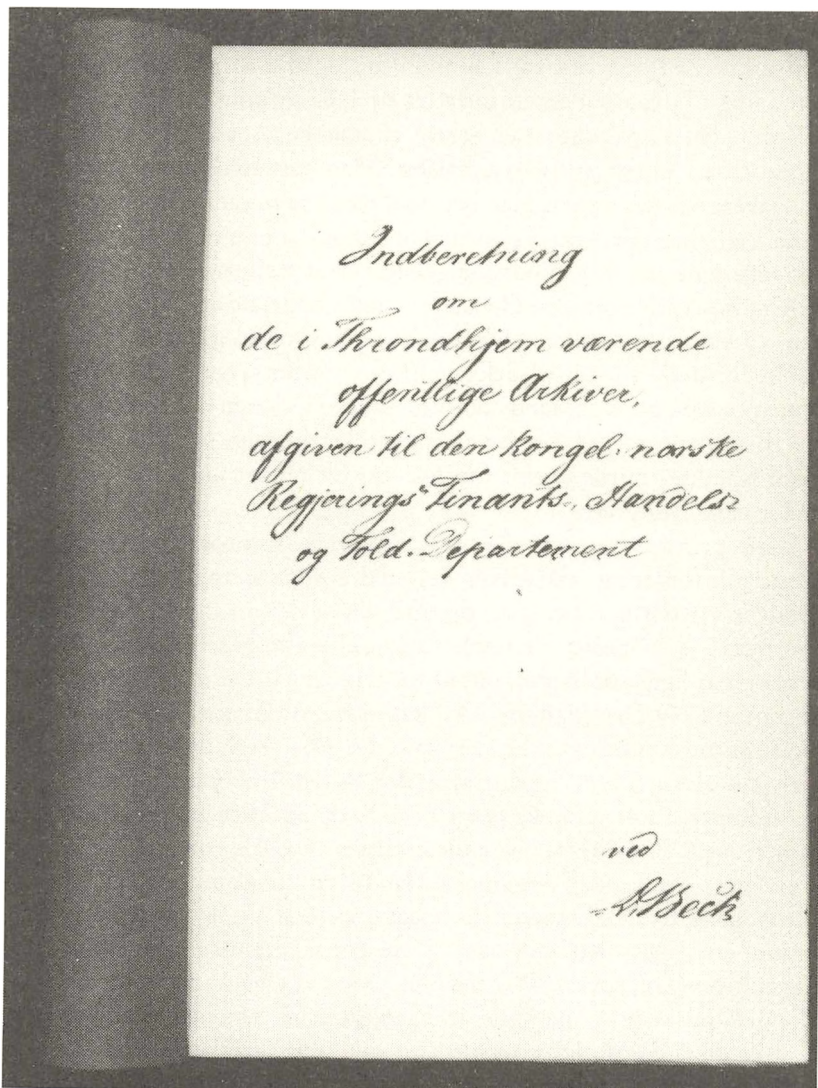 Indberetning
om
de i Throndhjem værende
offentlige Arkiver,
afgiven til den kongel. norske
Regjerings Finants-, Handels-
og Told-Departement
ved
D. Beck